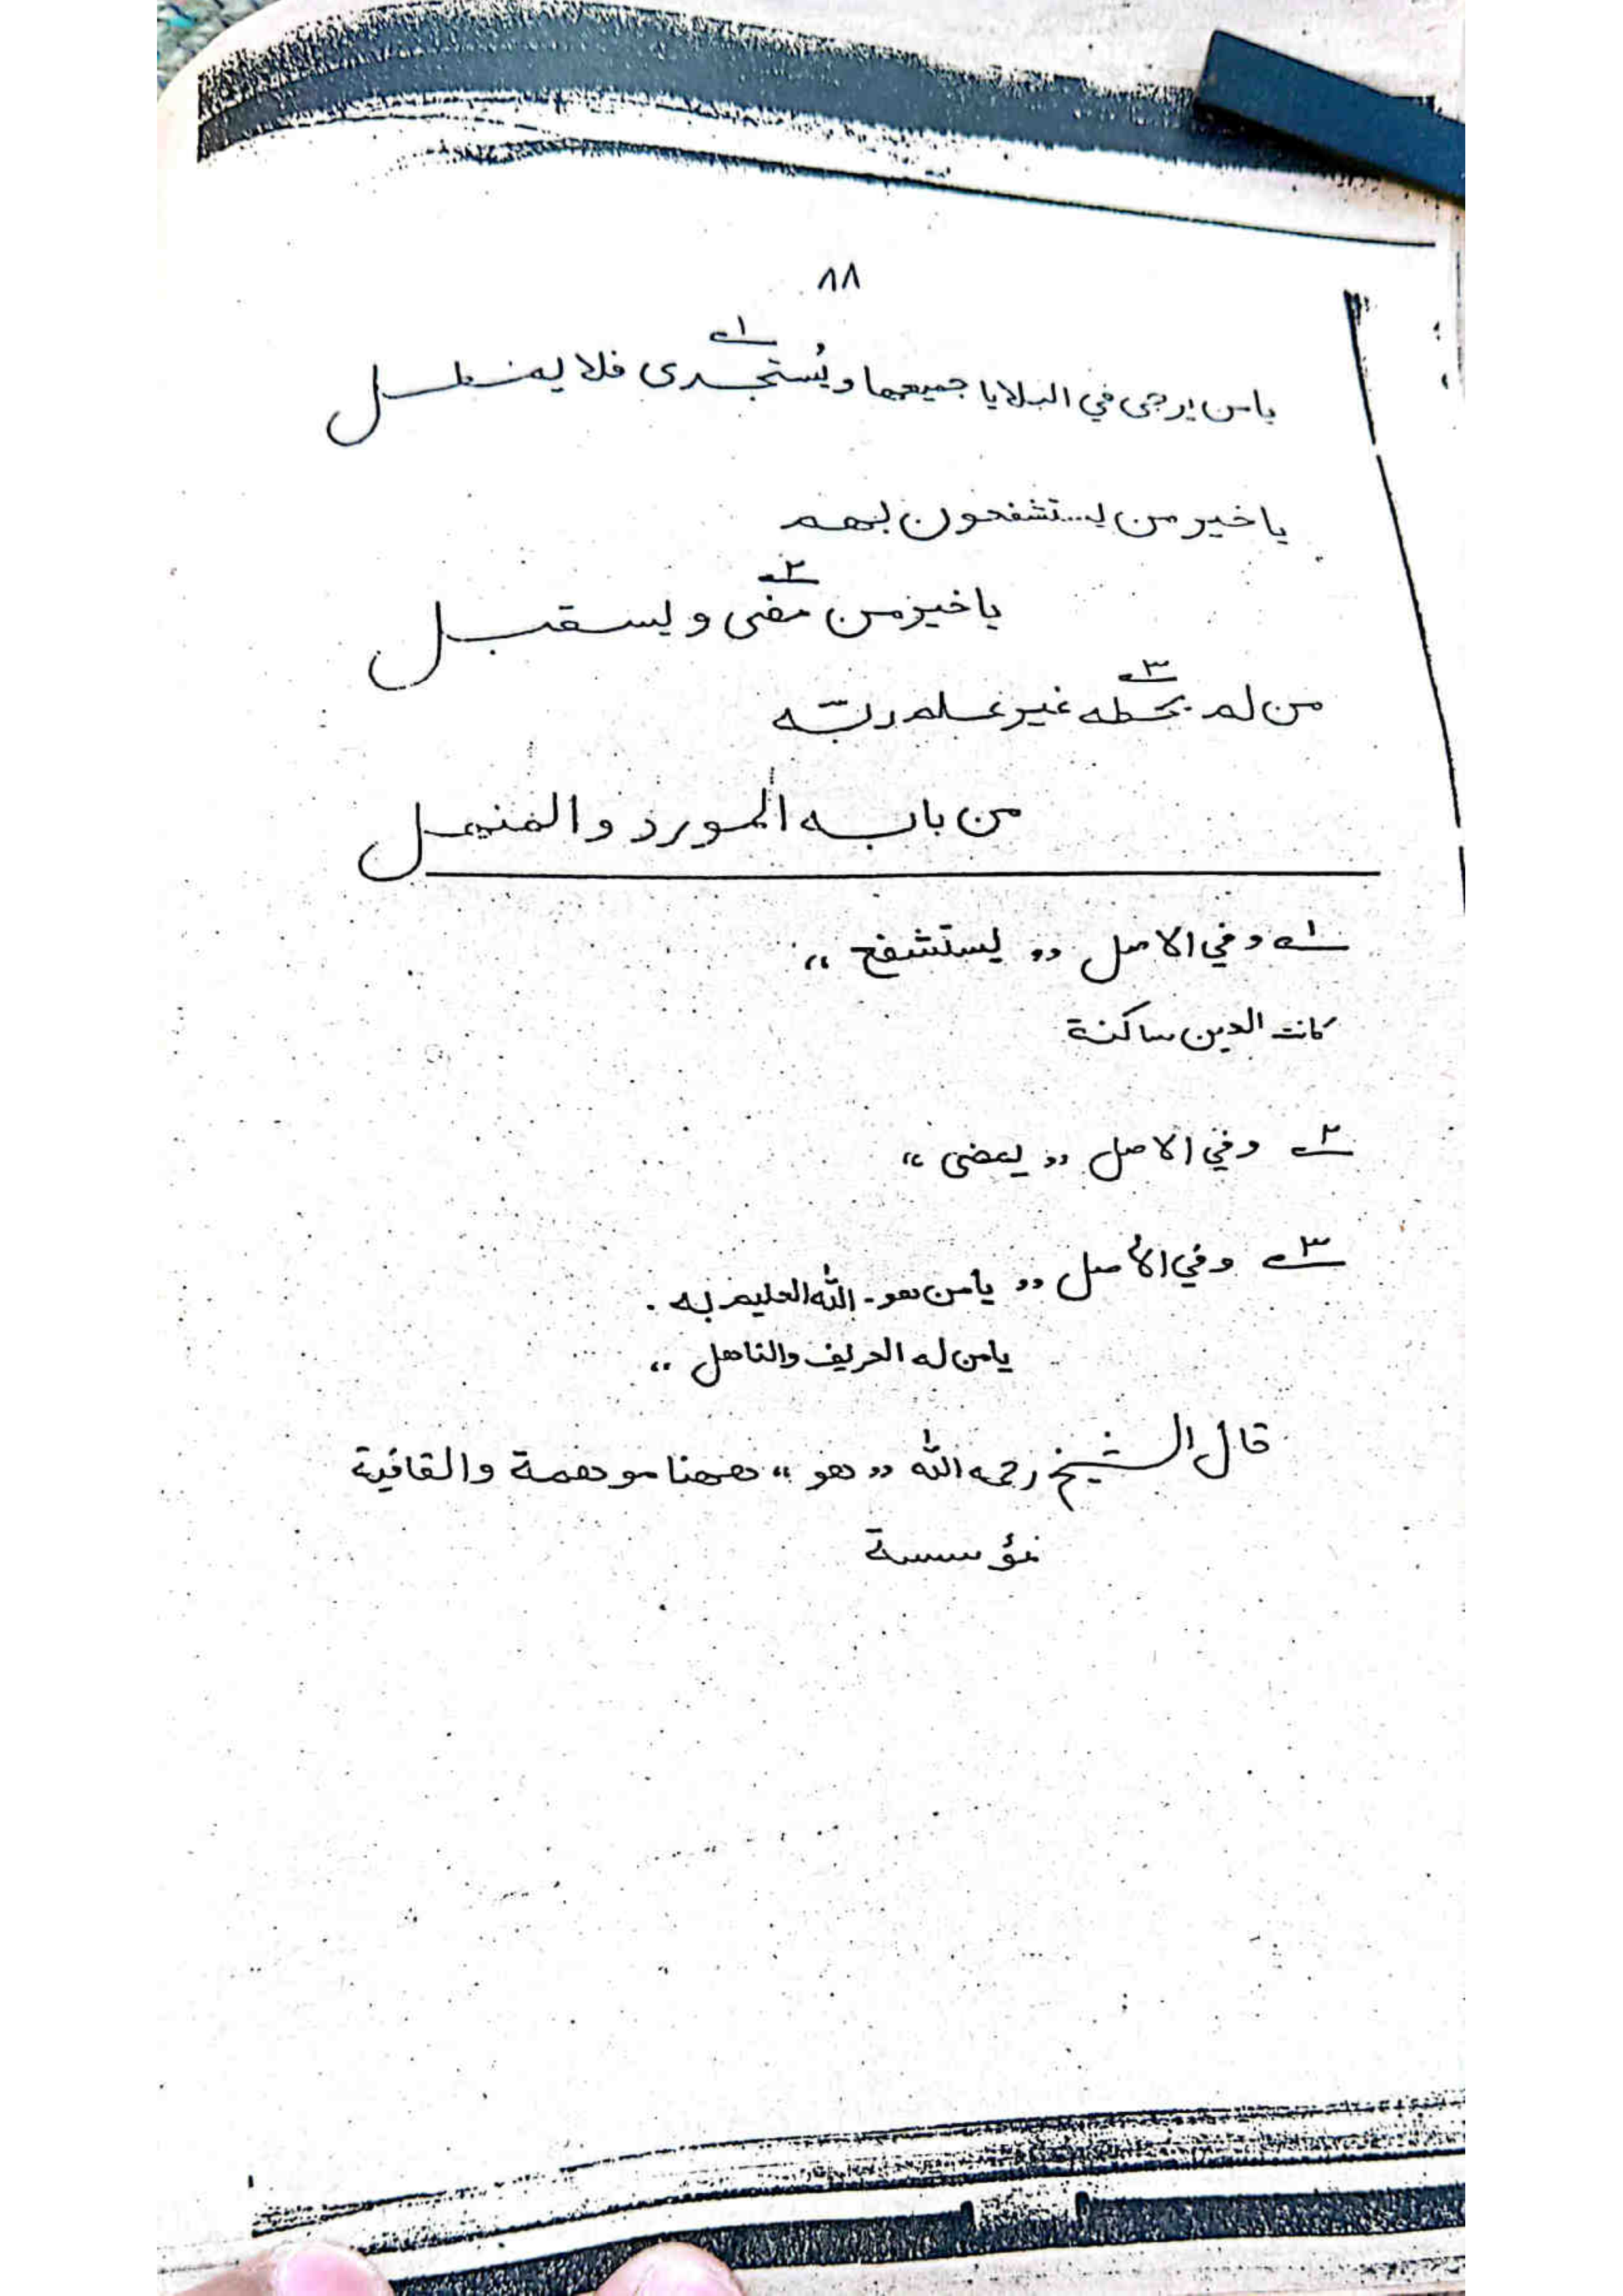 ٨٨
يا من يرجى في البلايا جميعها ويُستجدى ١ فلا يفشل
يا خير من يستشفعون بهم
يا خير من مضى ٢ ويسقبل
من لم يحطه ٣ غير علم ربّه
من بابه المورد والمنهل
١ـ وفي الاصل «يستشفع»
كانت العين ساكنة
٢ـ وفي الاصل «يمضى»
٣ـ وفي الأصل «يا من هو ـ الله العليم به .
يا من له العريف والناهل»
قال الشيخ رحمه الله «هو» ههنا موهمة والقافية
مؤسسة